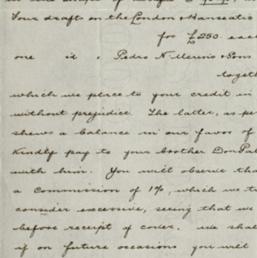 Your draft on the London & Hanseatic
for £250. each
one id. Pedro N. Merino & Sons
togeth
which we place to your credit in
without prejudice. The latter, as pe
shews a balance in our favor of
Kindly pay to your brother Don Pab
with him. You will observe tha
a Commission of 1%, which we tr
consider excessive, seeing that we
before receipt of cover. We shal
if on future occasions you will